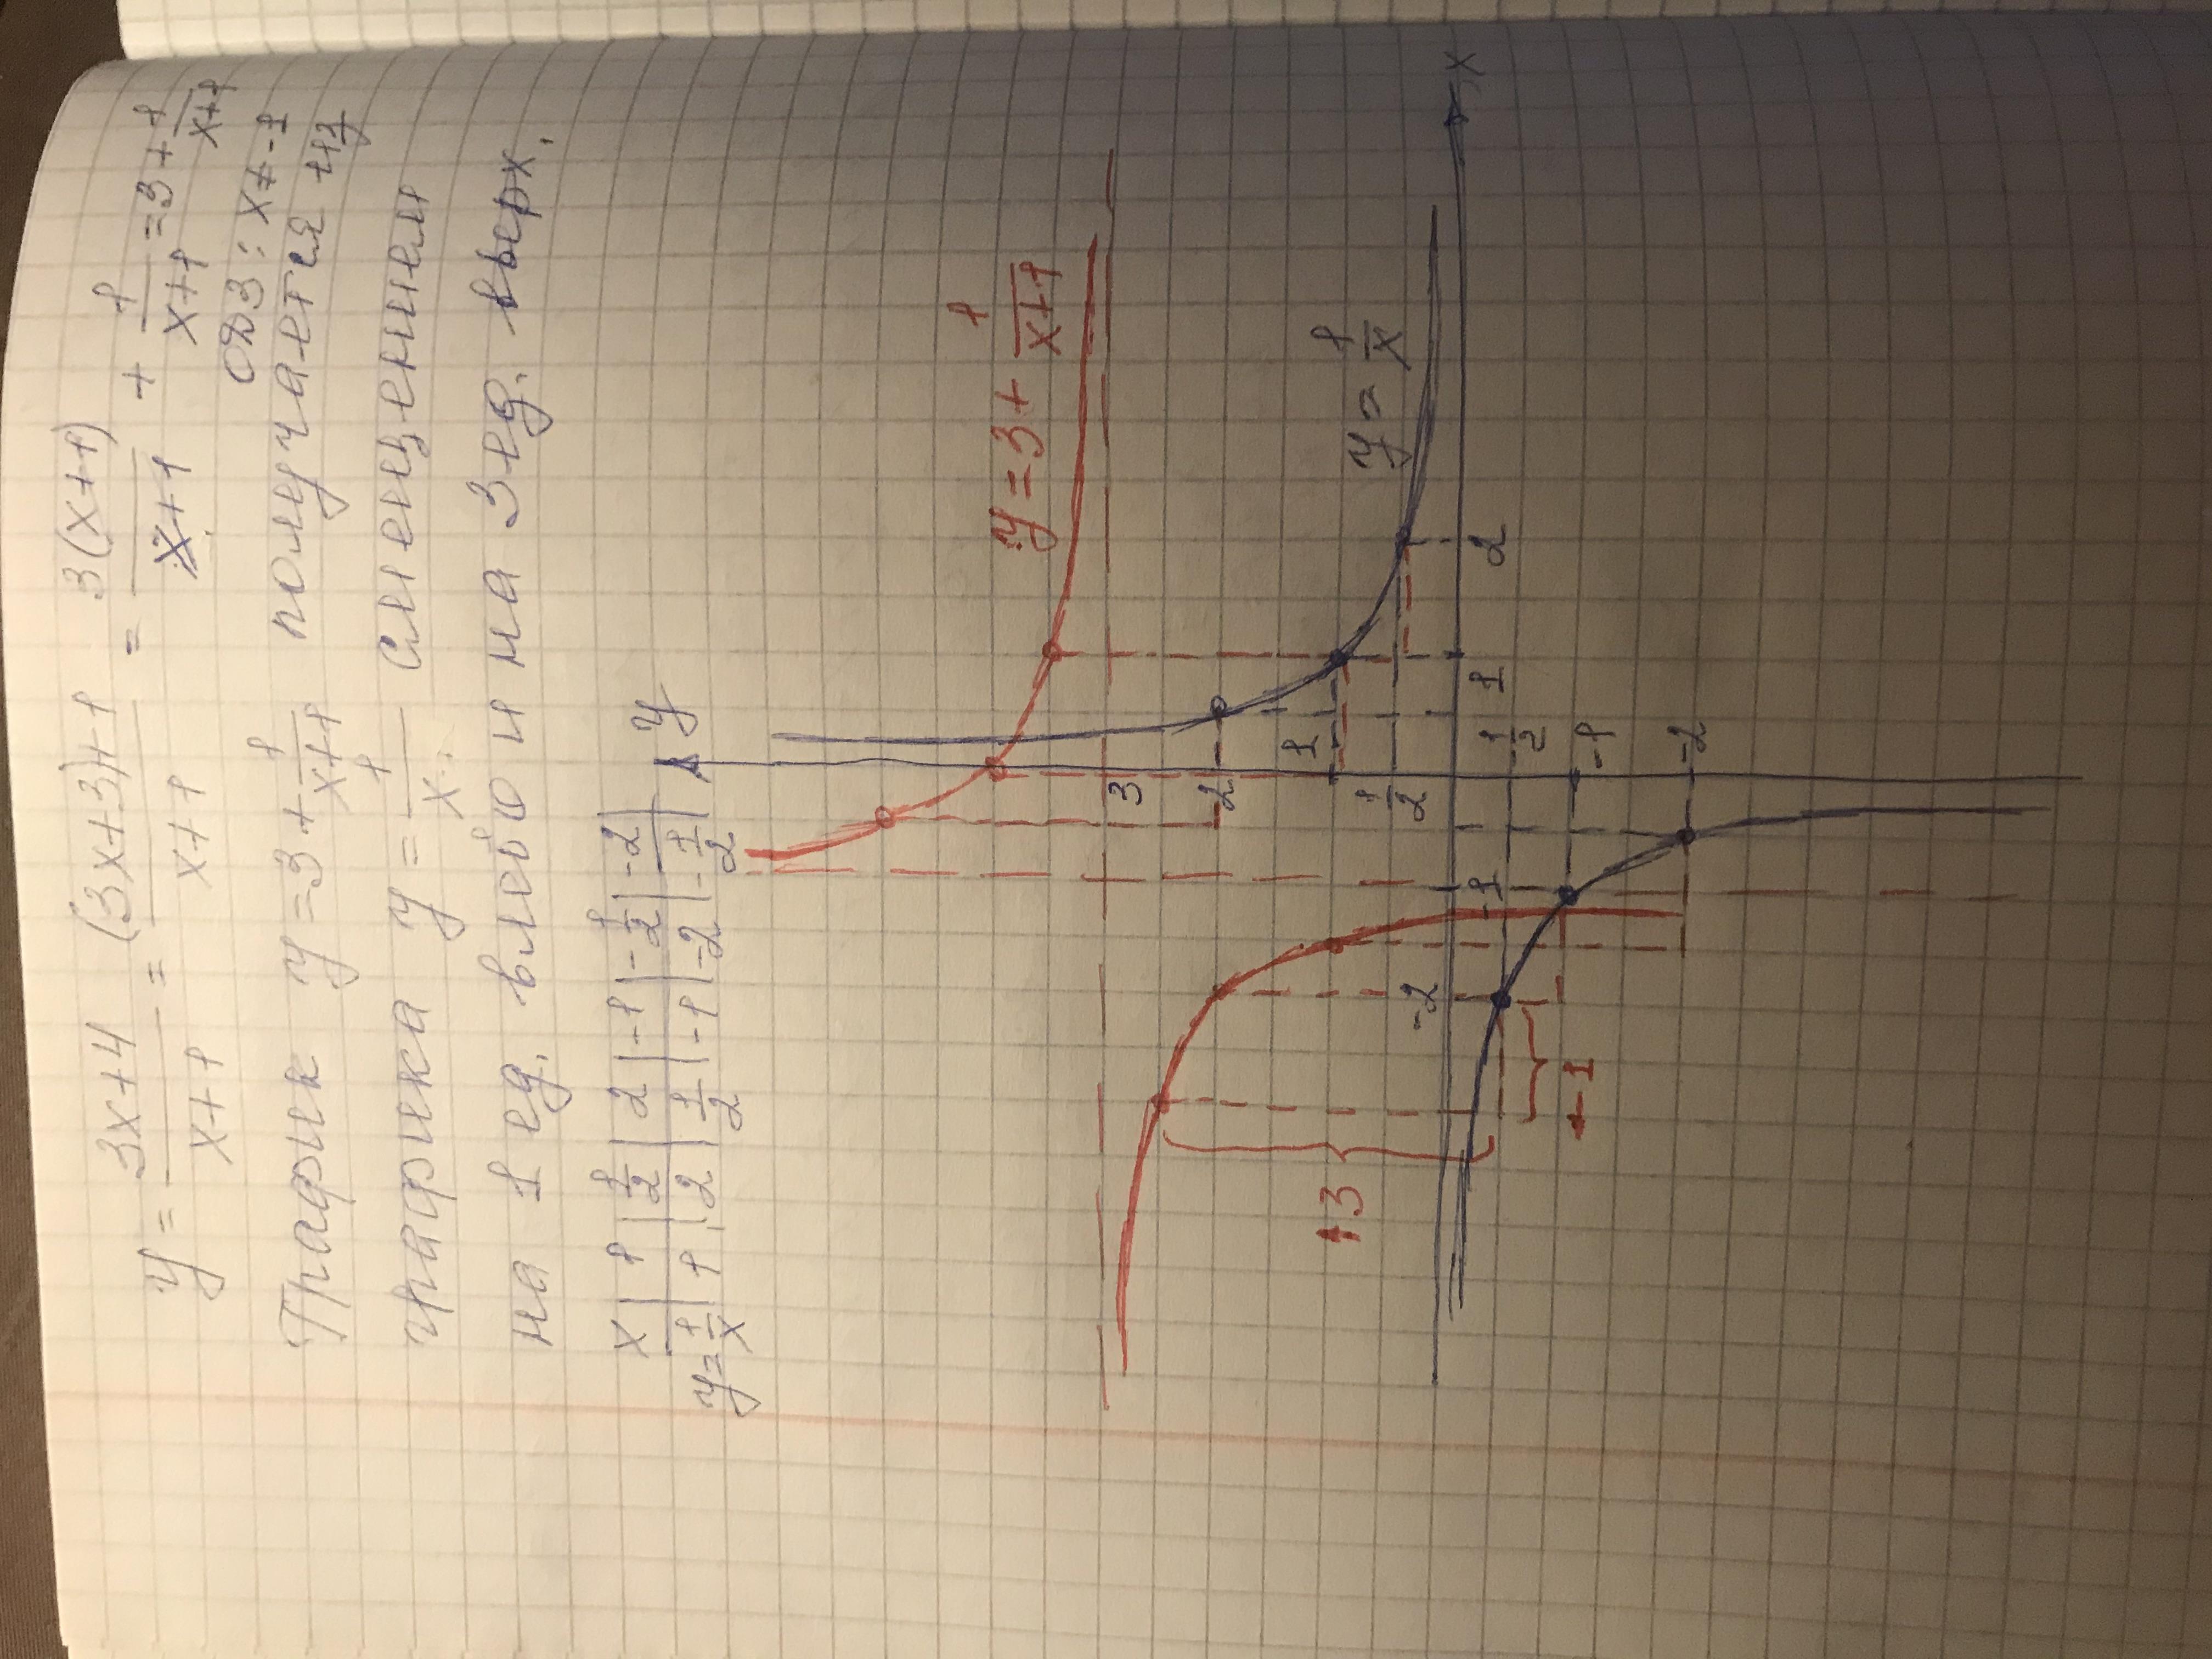 y = (3x+4)/(x+1) = ((3x+3)+1)/(x+1) = 3(x+1)/(x+1) + 1/(x+1) = 3 + 1/(x+1)
ОДЗ: x ≠ -1
График y = 3 + 1/(x+1) получается из
графика y = 1/x смещением
на 1 ед. влево и на 3 ед. вверх.
x | 1 | 1/2 | 2 | -1 | -1/2 | -2 |
y = 1/x | 1 | 2 | 1/2 | -1 | -2 | -1/2 |
y
y = 3 + 1/(x+1)
3
2
y = 1/x
1
1/2
↑3
-2
-1
1
2
x
1/2
-1
←1
-2